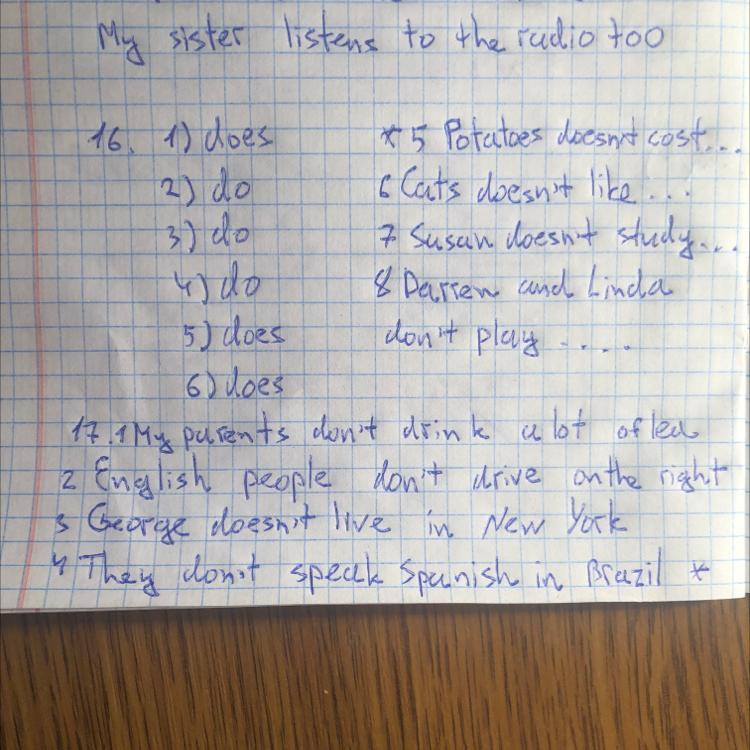 My sister listens to the radio too
16. 1) does
2) do
3) do
4) do
5) does
6) does
* 5 Potatoes doesn't cost...
6 Cats doesn't like ...
7 Susan doesn't study...
8 Darren and Linda
don't play ....
17. 1 My parents don't drink a lot of tea
2 English people don't drive on the right
3 George doesn't live in New York
4 They don't speak Spanish in Brazil *